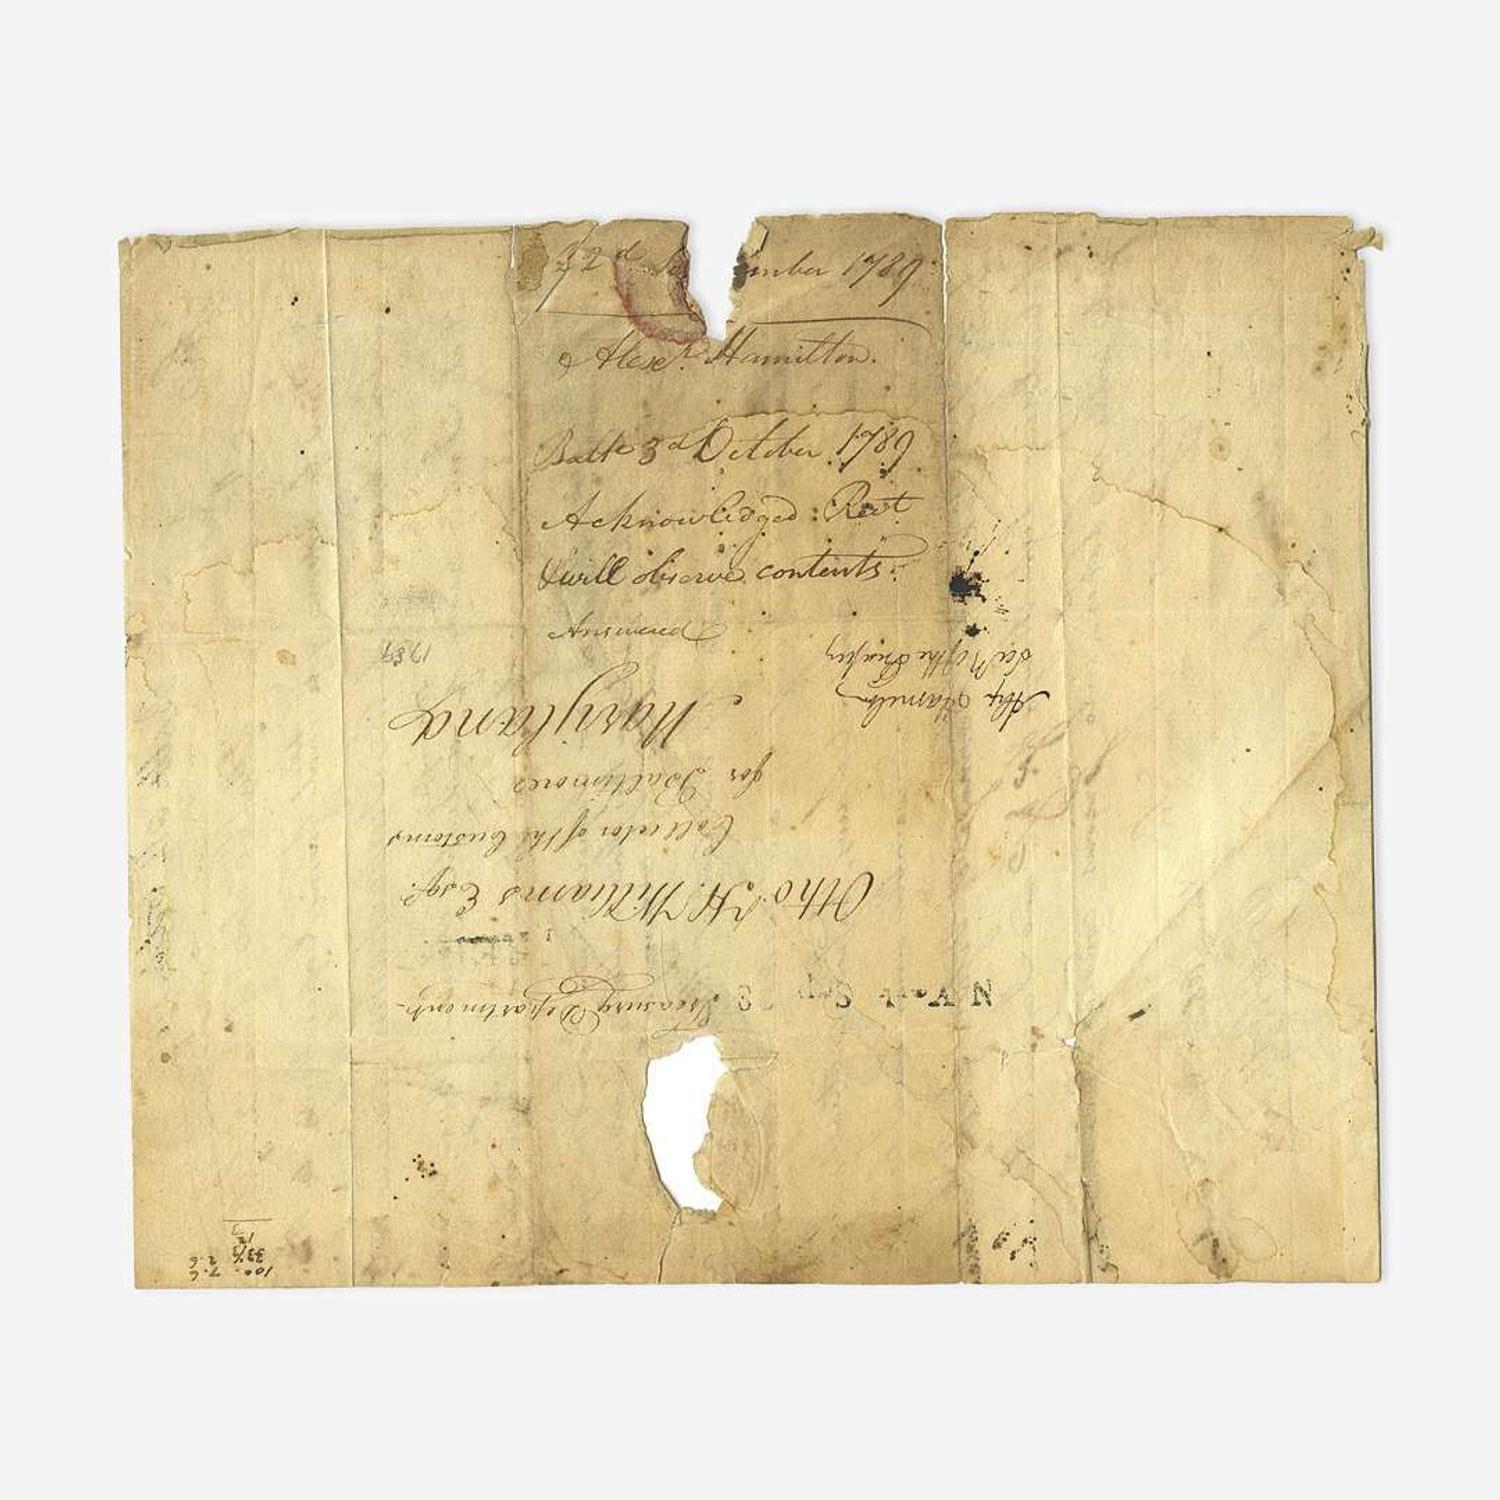 22d Se ember 1789
Alexr. Hamilton.
Balte 3d October 1789
Acknowledged Rect
& will observe contents.
Answered
Treasury Department
Otho H. Williams Esqr.
Collector of the Customs
for Baltimore
Maryland
Alex Hamilton
Secy of the Treasury
1789
100
33 1/3
12
3
7.6
2.6